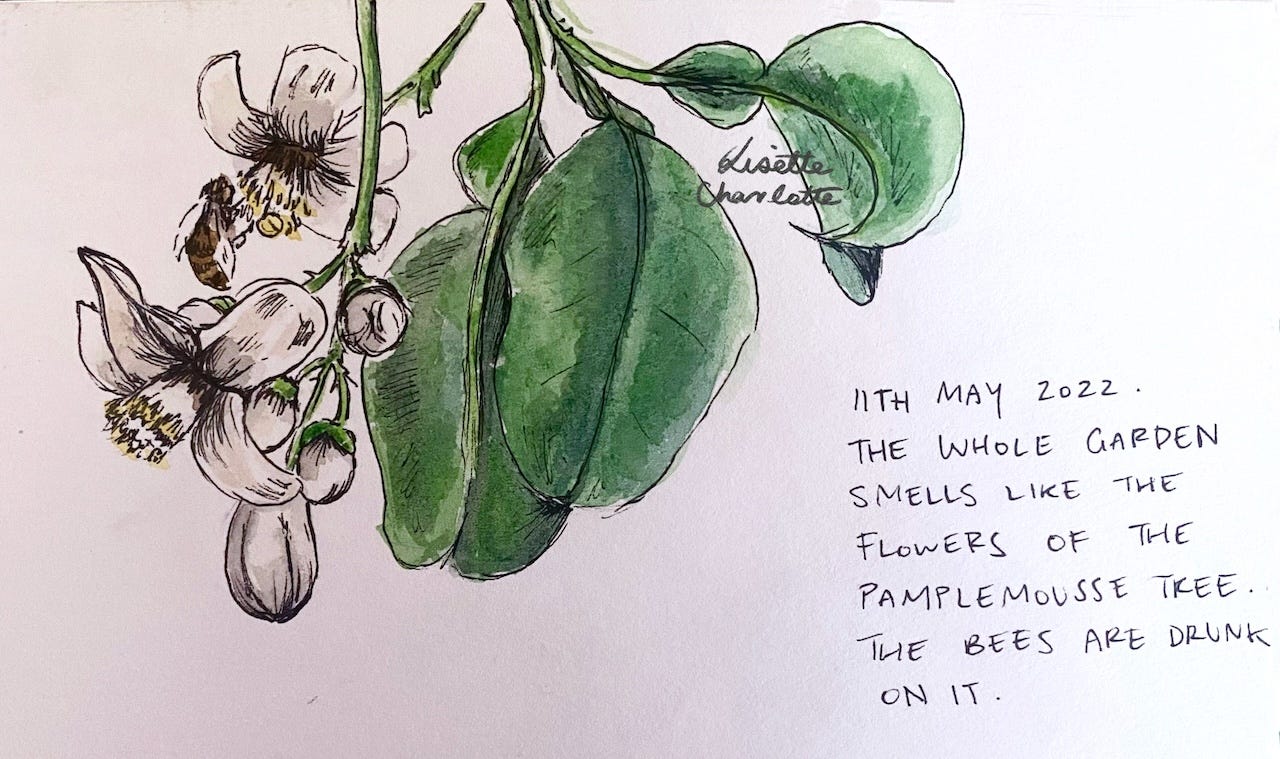 Lisette
Charlotte
11TH MAY 2022.
THE WHOLE GARDEN
SMELLS LIKE THE
FLOWERS OF THE
PAMPLEMOUSSE TREE.
THE BEES ARE DRUNK
ON IT.